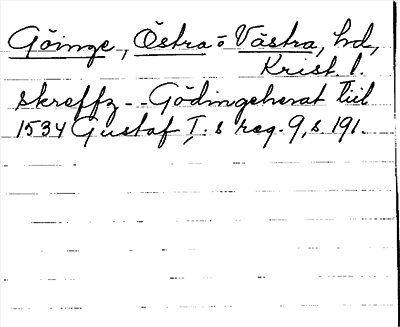 Göinge, Östra o Västra, hd,
Krist. l.
skreffz -- Gödingeherat Tiil
1534 Gustaf I:s reg. 9, s. 191.